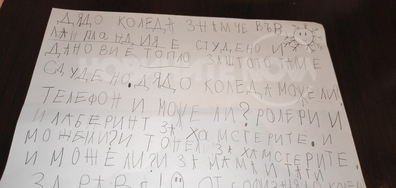 ДЯДО КОЛЕДА ЗНАМЧЕ ВЪВ
ЛАПЛАНДИЯ Е СТУДЕНО И
ДАНО ВИ Е ТОПЛО ЗАЩТОТОТАМЕ
СДУДЕНО.ДЯДО КОЛЕДА МОЧЕ ЛИ
ТЕЛЕФОН И МОЧЕ ЛИ? РОЛЕРИ И
И ЛАБЕРИНТ ЗА ХАМСТЕРИТЕ. И
МОЖЕЛИ?И ТОНЕЛ ЗА ХАМСТЕРИТЕ.
И МОЖЕ ЛИ? ЗА МАМА И ТАТИ
ЗДРАВЕ! ОТ